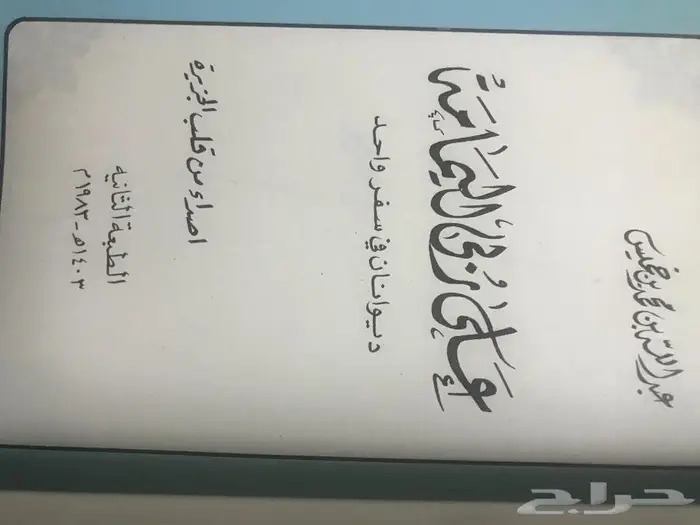 عبد الله بن محمد بن خميس
على ربى اليمامة
ديوانان في سفر واحد
اصداء من قلب الجزيرة
الطبعة الثانيه
١٤٠٣هـ - ١٩٨٣م
حراج